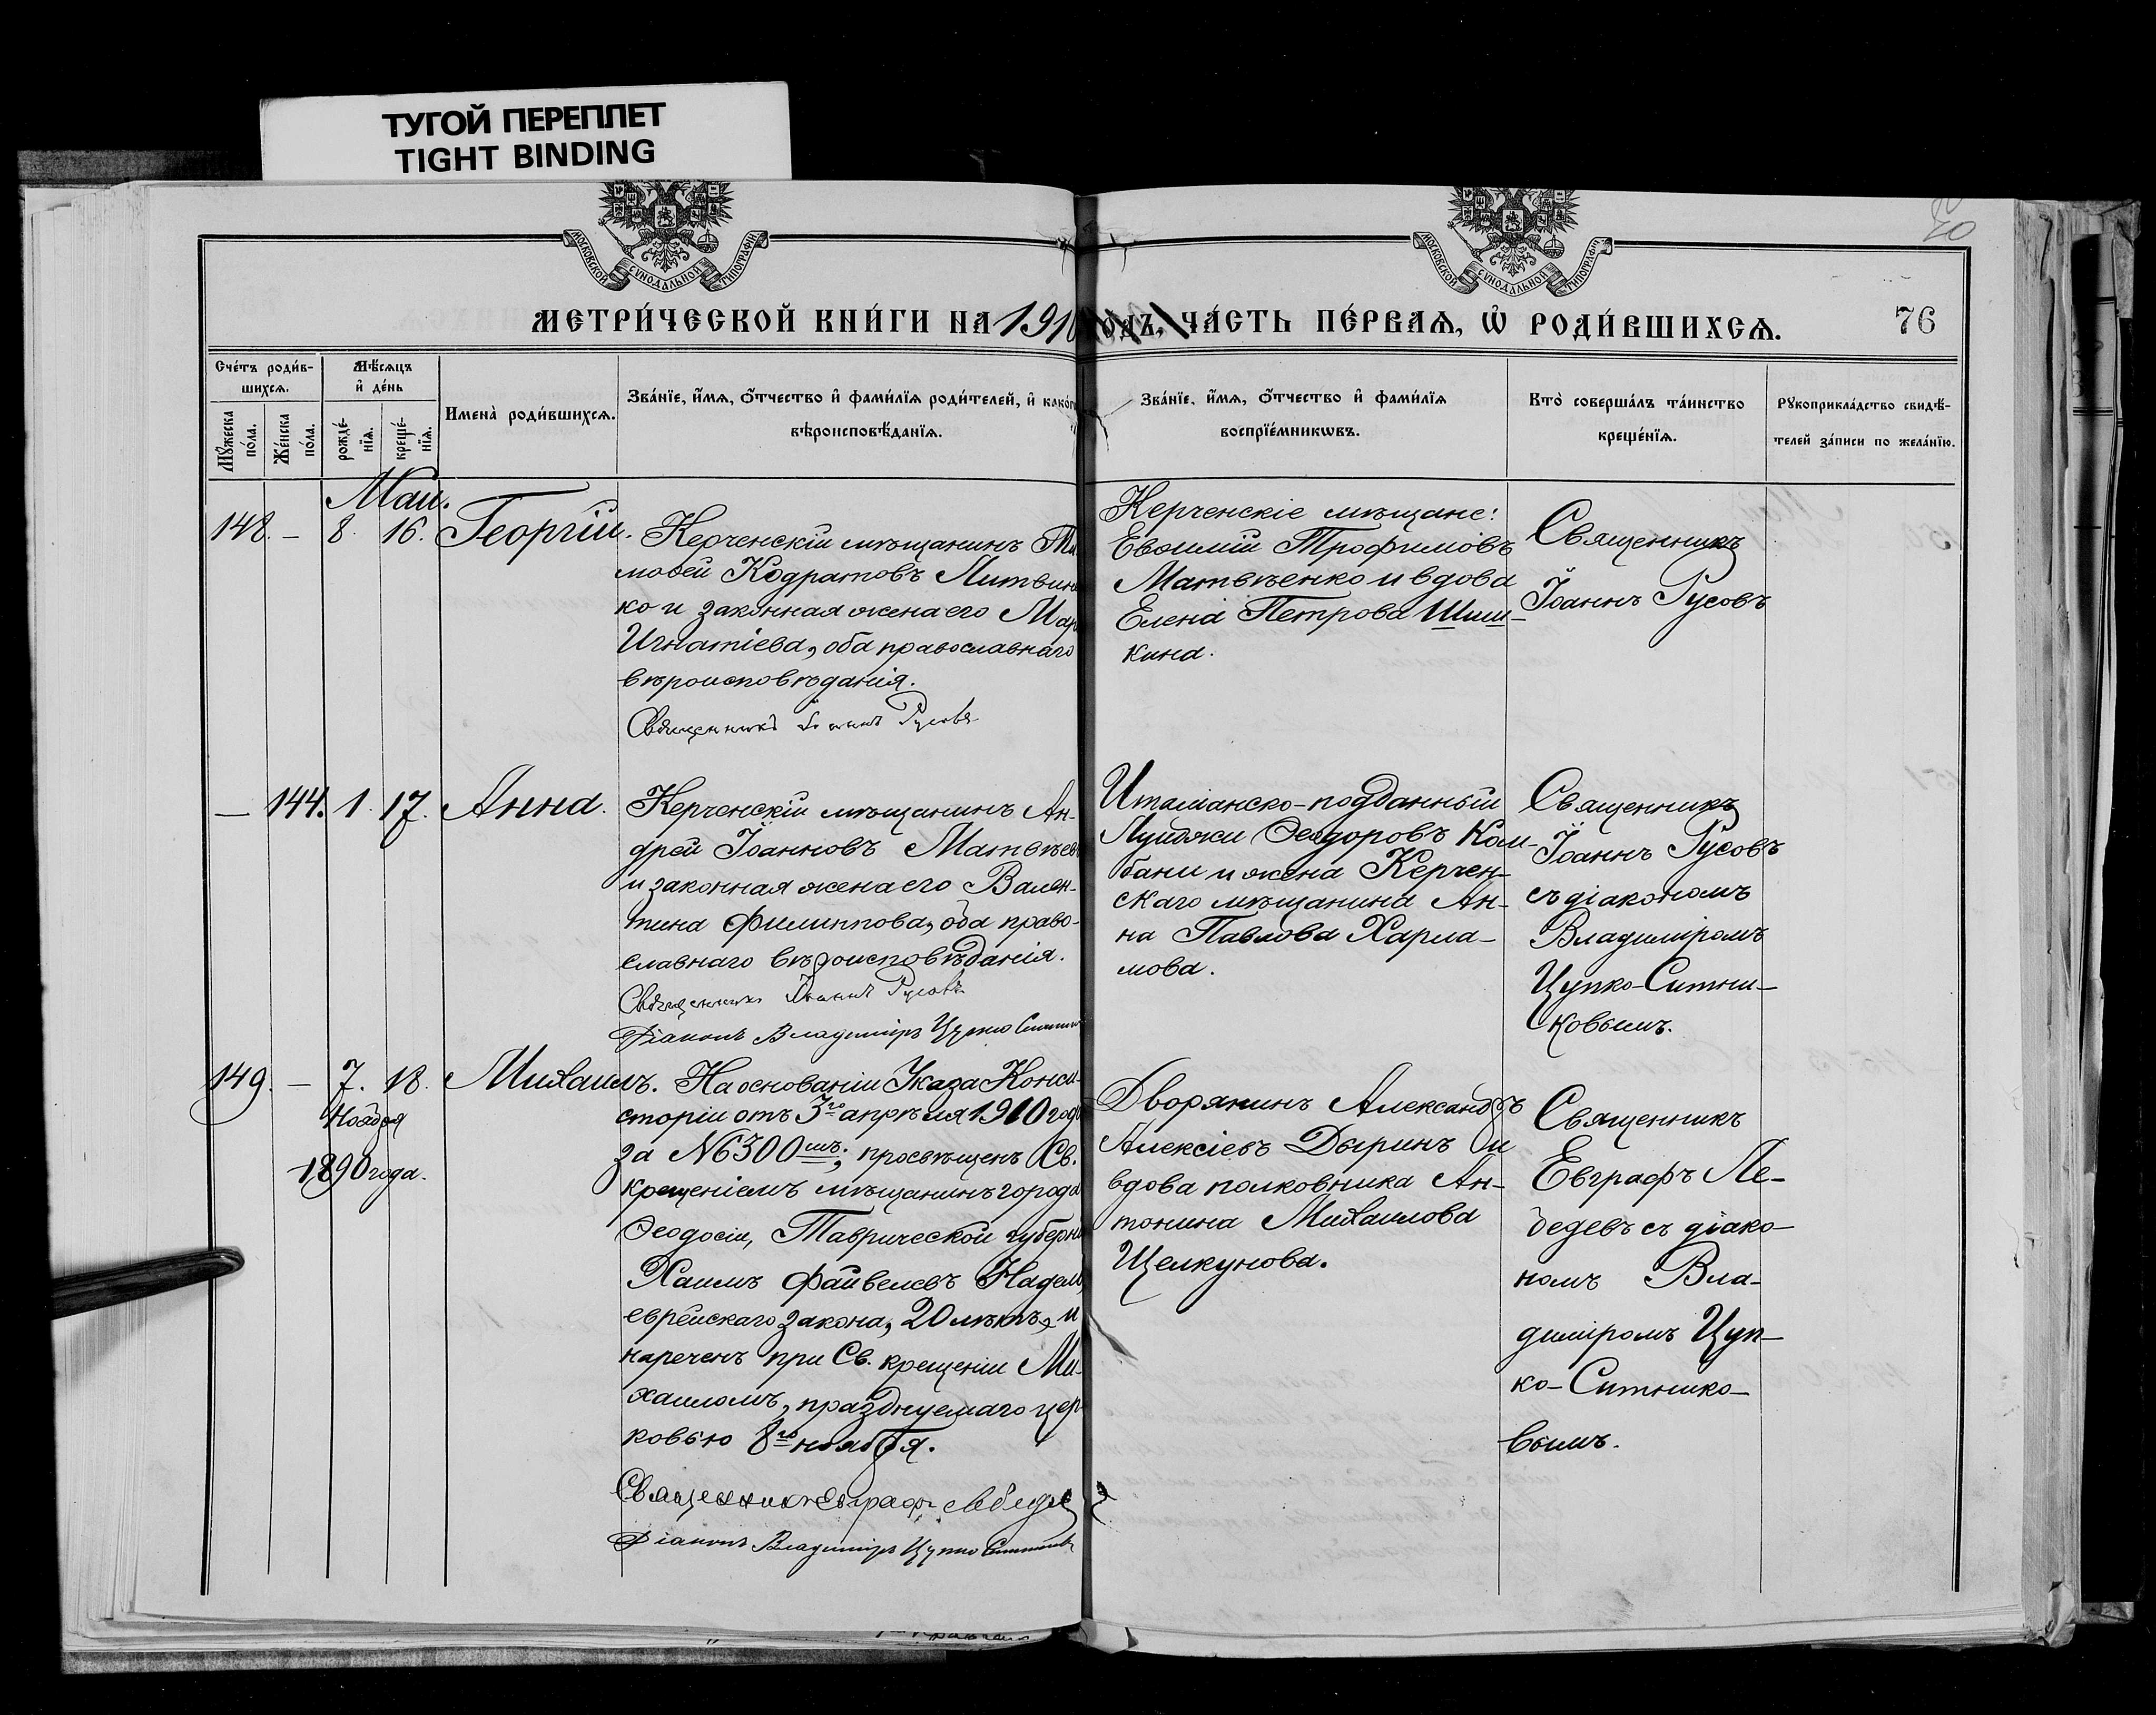 ТУГОЙ ПЕРЕПЛЕТ
TIGHT BINDING
МОСКОВСКОЙ СѴНОДАЛЬНОЙ ТИПОГРАФІИ
МОСКОВСКОЙ СѴНОДАЛЬНОЙ ТИПОГРАФІИ
МЕТРИ́ЧЕСКОЙ КНИ́ГИ НА 1910
ЧА́СТЬ ПЕ́РВАѦ, Ѡ҆ РОДИ́ВШИХСѦ.
76
Счетъ роди́в-
шихсѧ.
Мꙋжеска
по́ла.
Же́нска
по́ла.
Мѣ́сѧцъ
и҆ де́нь
рожде́-
нїѧ.
креще́-
нїѧ.
Имена̀ роди́вшихсѧ.
Зва́нїе, и҆́мѧ, ѻ҆́тчество и҆ фами́лїѧ роди́телей, и҆ како́г
вѣроисповѣ́данїѧ.
Зва́нїе, и҆́мѧ, ѻ҆́тчество и҆ фами́лїѧ
воспрїе́мникѡвъ.
Кто̀ соверша́лъ та́инство
креще́нїѧ.
Рꙋкоприкла́дство свидѣ́-
телей за́писи по жела́нїю.
Маи.
148. – 8. 16. Георгій.
Керченскій мѣщанинъ Ти
моѳей Кодратовъ Литвин
ко и законная жена его Мар
Игнатіева, оба православнаго
вѣроисповѣданія.
Священникъ Іоаннъ Русовъ
Керченскіе мѣщане:
Евѳимій Трофимовъ
Матвѣенко и вдова
Елена Петрова Шиш-
кина.
Священникъ
Іоаннъ Русовъ
– 144. 1. 17. Анна.
Керченскій мѣщанинъ Ан-
дрей Іоанновъ Матвѣев
и законная жена его Вален-
тина Филиппова, оба право-
славнаго вѣроисповѣданія.
Священникъ Іоаннъ Русовъ
Діаконъ Владиміръ Цупко Ситник
Италіанско-подданный
Луиджи Ѳеодоровъ Ком-
бани и жена Керчен-
скаго мѣщанина Ан-
на Павлова Харла-
мова.
Священникъ
Іоаннъ Русовъ
съ діакономъ
Владиміромъ
Цупко-Ситни-
ковымъ.
149. – 7. 18. Михаилъ.
Ноября
1890 года.
На основаніи Указа Конси-
сторіи отъ 3го апрѣля 1910 год
за №6300мъ; просвѣщенъ Св.
крещеніемъ мѣщанинъ города
Ѳеодосіи, Таврической губерні
Хаимъ Файвелевъ Надел
еврейскаго закона, 20 лѣтъ, и
нареченъ при Св. крещеніи Ми-
хаиломъ, празднуемаго цер-
ковью 8го ноября.
Священникъ Евграфъ Лебеде
Діаконъ Владиміръ Цупко Ситников
Дворянинъ Александръ
Алексіевъ Дыринъ и
вдова полковника Ан-
тонина Михаилова
Щелкунова.
Священникъ
Евграфъ Ле-
бедевъ съ діако-
номъ Вла-
диміромъ Цуп-
ко-Ситнико-
вымъ.